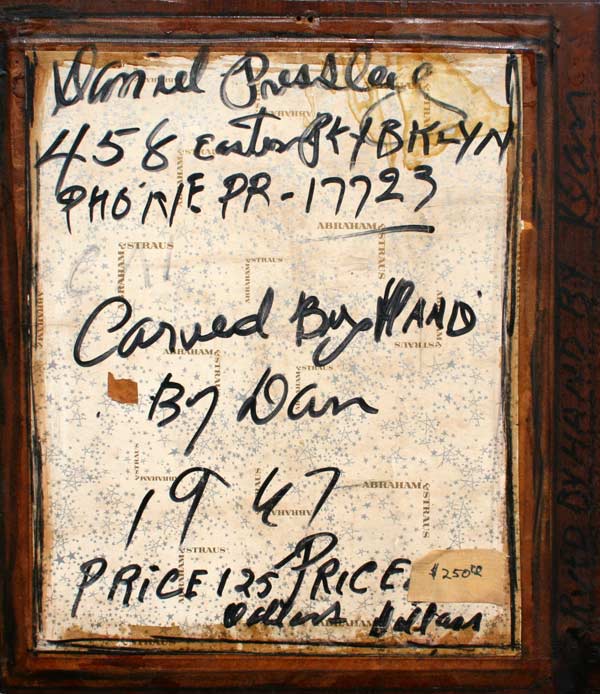 Daniel Pressley
458 Eastern PKY BKLYN
PHONE PR-17723
Carved By "HAND"
By Dan
1947
PRICE 125 PRICE $250
Dollars Dollars
ABRAHAM & STRAUS
CARVED BY HAND BY